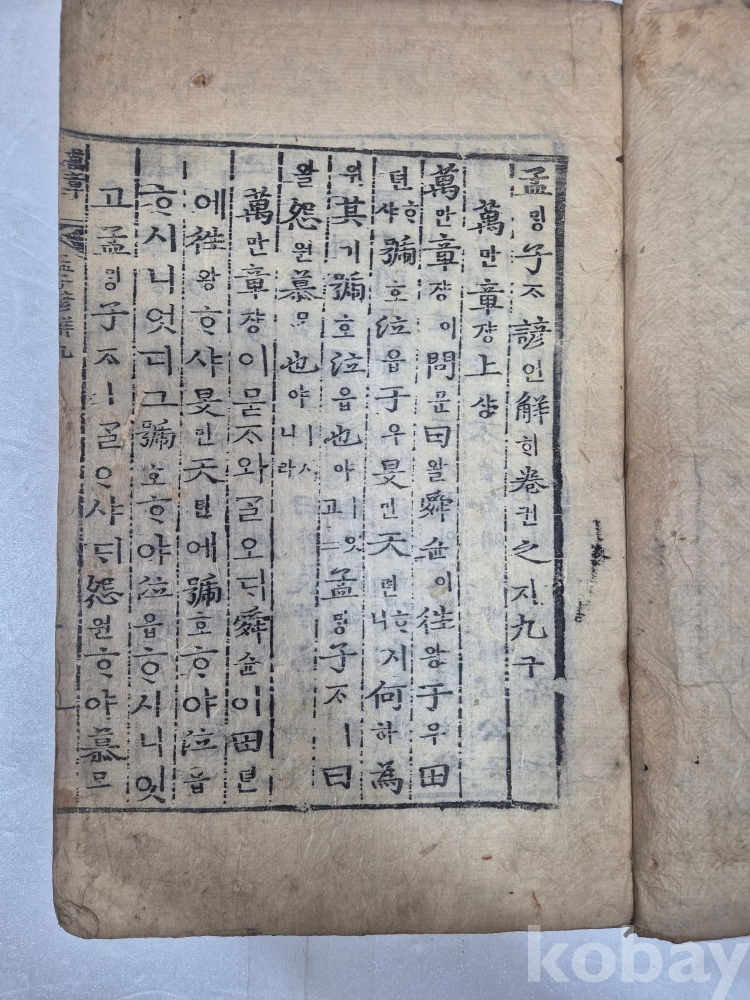 孟ᄆᆡᆼ子ᄌᆞ諺언解ᄒᆡ卷권之지九구
萬만章쟝上샹
萬만章쟝이問문曰왈舜슌이往왕于우田
뎐ᄒᆞ샤號호泣읍于우旻민天텬ᄒᆞ시니何하為
위其기號호泣읍也야ㅣ잇고孟ᄆᆡᆼ子ᄌᆞㅣ曰
왈怨원慕모也야ㅣ시니라
萬만章쟝이묻ᄌᆞ와ᄀᆞᆯ오ᄃᆡ舜슌이田뎐
에往왕ᄒᆞ샤旻민天텬에號호ᄒᆞ야泣읍
ᄒᆞ시니엇디그號호ᄒᆞ야泣읍ᄒᆞ시니잇
고孟ᄆᆡᆼ子ᄌᆞㅣᄀᆞᆯᄋᆞ샤ᄃᆡ怨원ᄒᆞ야慕모
萬章 孟子諺解九
kobay